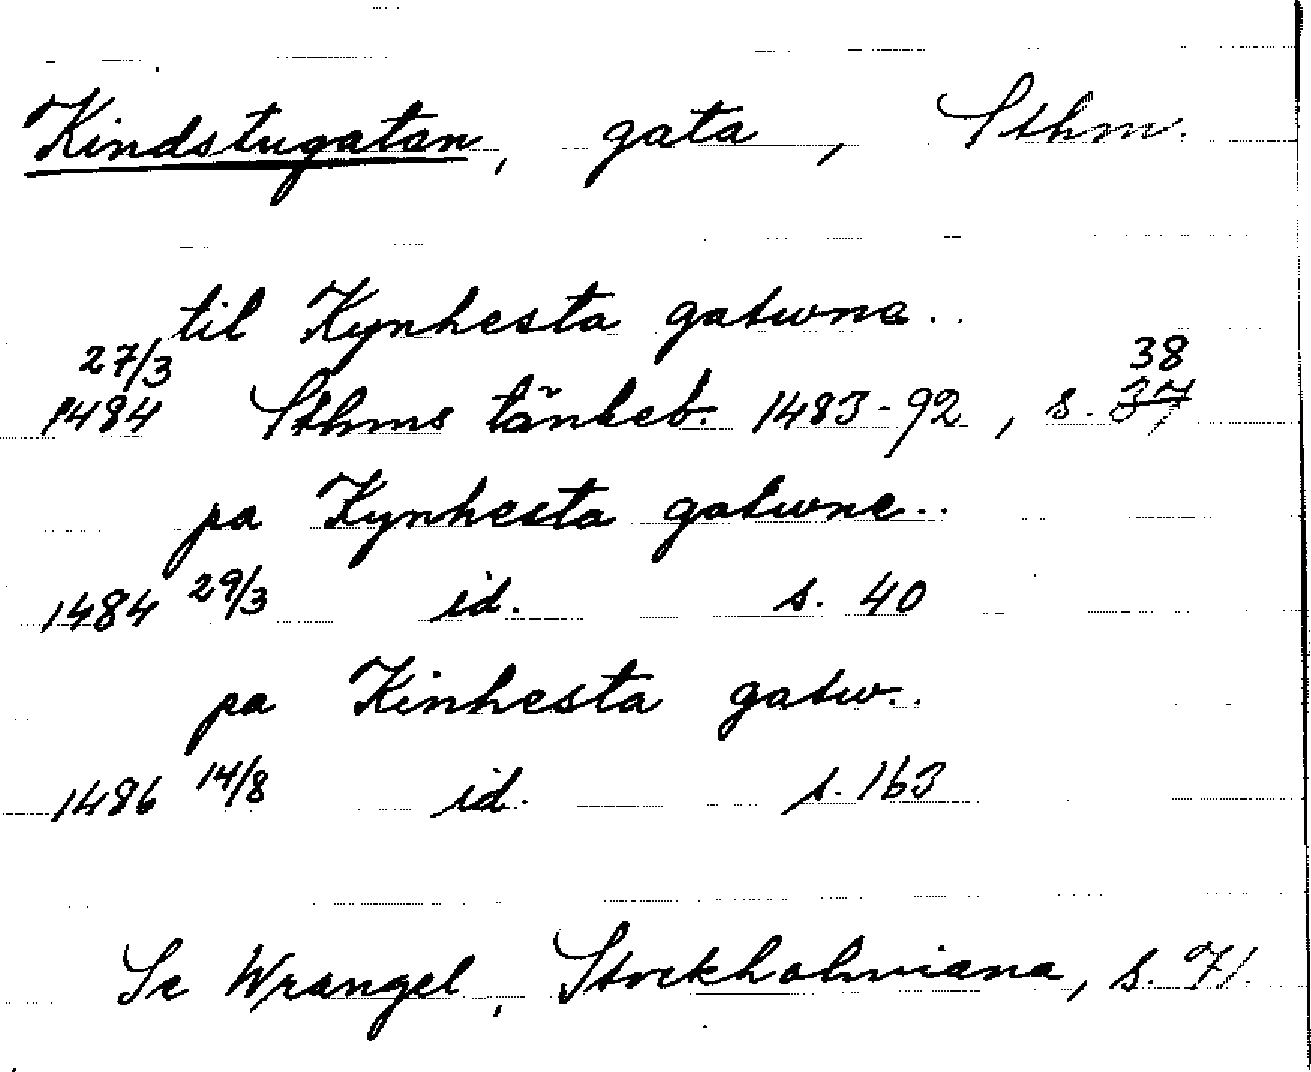 Kindstugatan, gata, Sthm.
til Kynhesta gatwne..
27/3 1484 Sthms tänkeb. 1483-92, s. 37 38
pa Kynhesta gatwne..
1484 29/3 id. s. 40
pa Kinhesta gatw..
1486 14/8 id. s. 163
Se Wrangel, Stockholmiana, s. 71.